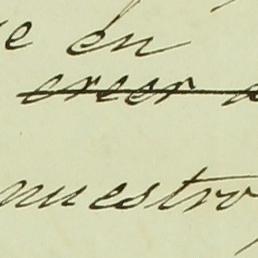 e en
creer
nuestro,